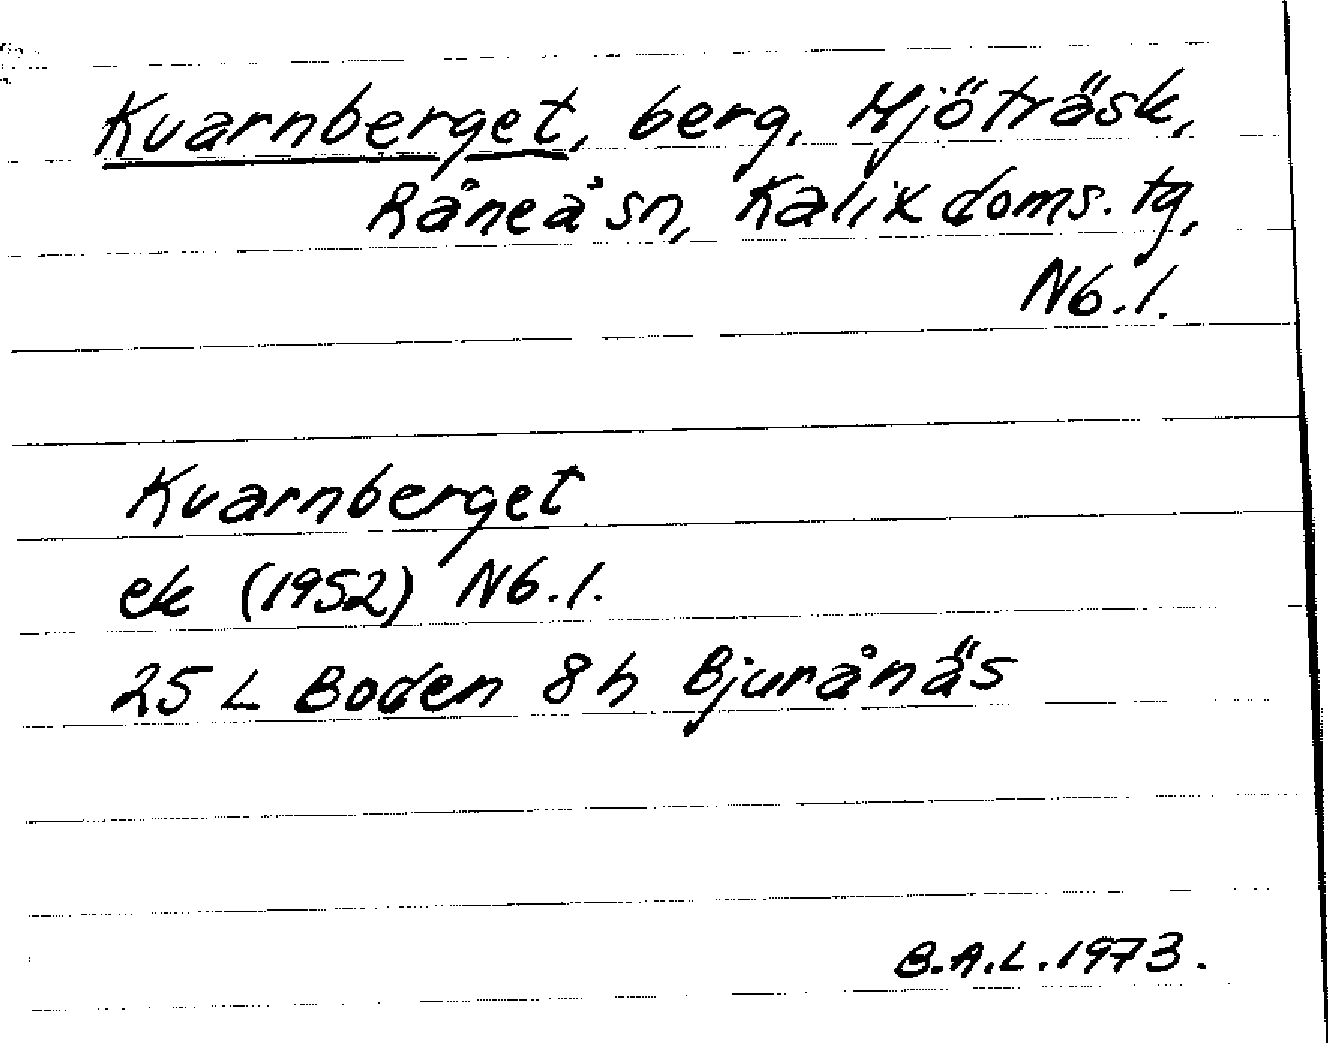 Kvarnberget, berg, Mjöträsk,
Råneå sn, Kalix doms. tg,
Nb. l.
Kvarnberget
ek (1952) Nb. l.
25 L Boden 8 h Bjurånäs
B.A.L. 1973.